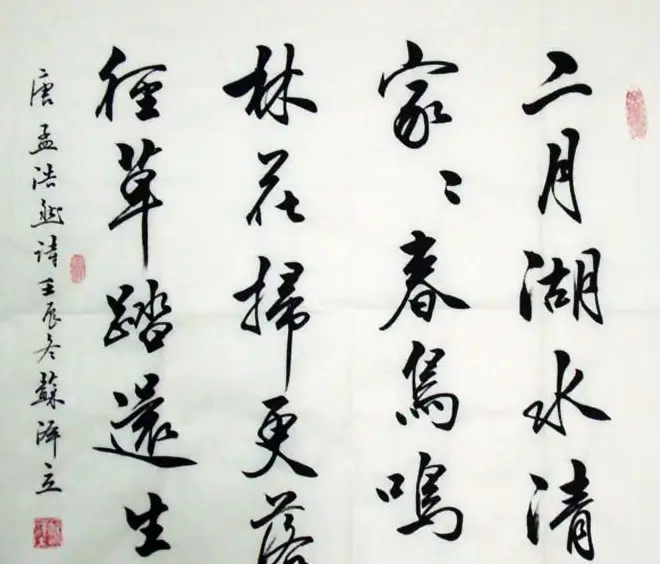 二月湖水清
家〻春鳥鳴
林花掃更落
徑草踏還生
唐孟浩然詩壬辰冬蘇澤立